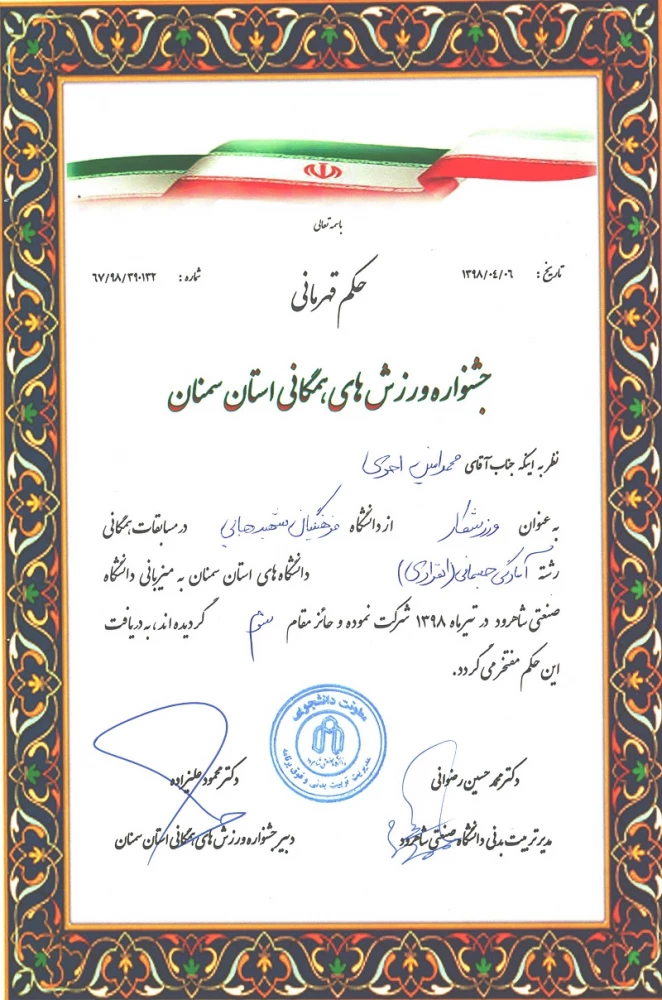 باسمه تعالی
تاریخ : ۱۳۹۸/۰۴/۰۶
شماره : ۶۷/۹۸/۳۹۰۱۳۲
حکم قهرمانی
جشنواره ورزش های همگانی استان سمنان
نظر به اینکه جناب آقای محمد امین احمدی
به عنوان ورزشکار از دانشگاه فرهنگیان شهید رجایی در مسابقات همگانی
رشته آمادگی جسمانی (انفرادی) دانشگاه های استان سمنان به میزبانی دانشگاه
صنعتی شاهرود در تیرماه ۱۳۹۸ شرکت نموده و حائز مقام سوم گردیده اند، به دریافت
این حکم مفتخر می گردد.
معاونت دانشجویی
دانشگاه صنعتی شاهرود
مدیریت تربیت بدنی و فوق برنامه
دکتر محمد حسین رضوانی
مدیر تربیت بدنی دانشگاه صنعتی شاهرود
دکتر محمود علیزاده
دبیر جشنواره ورزش های همگانی استان سمنان